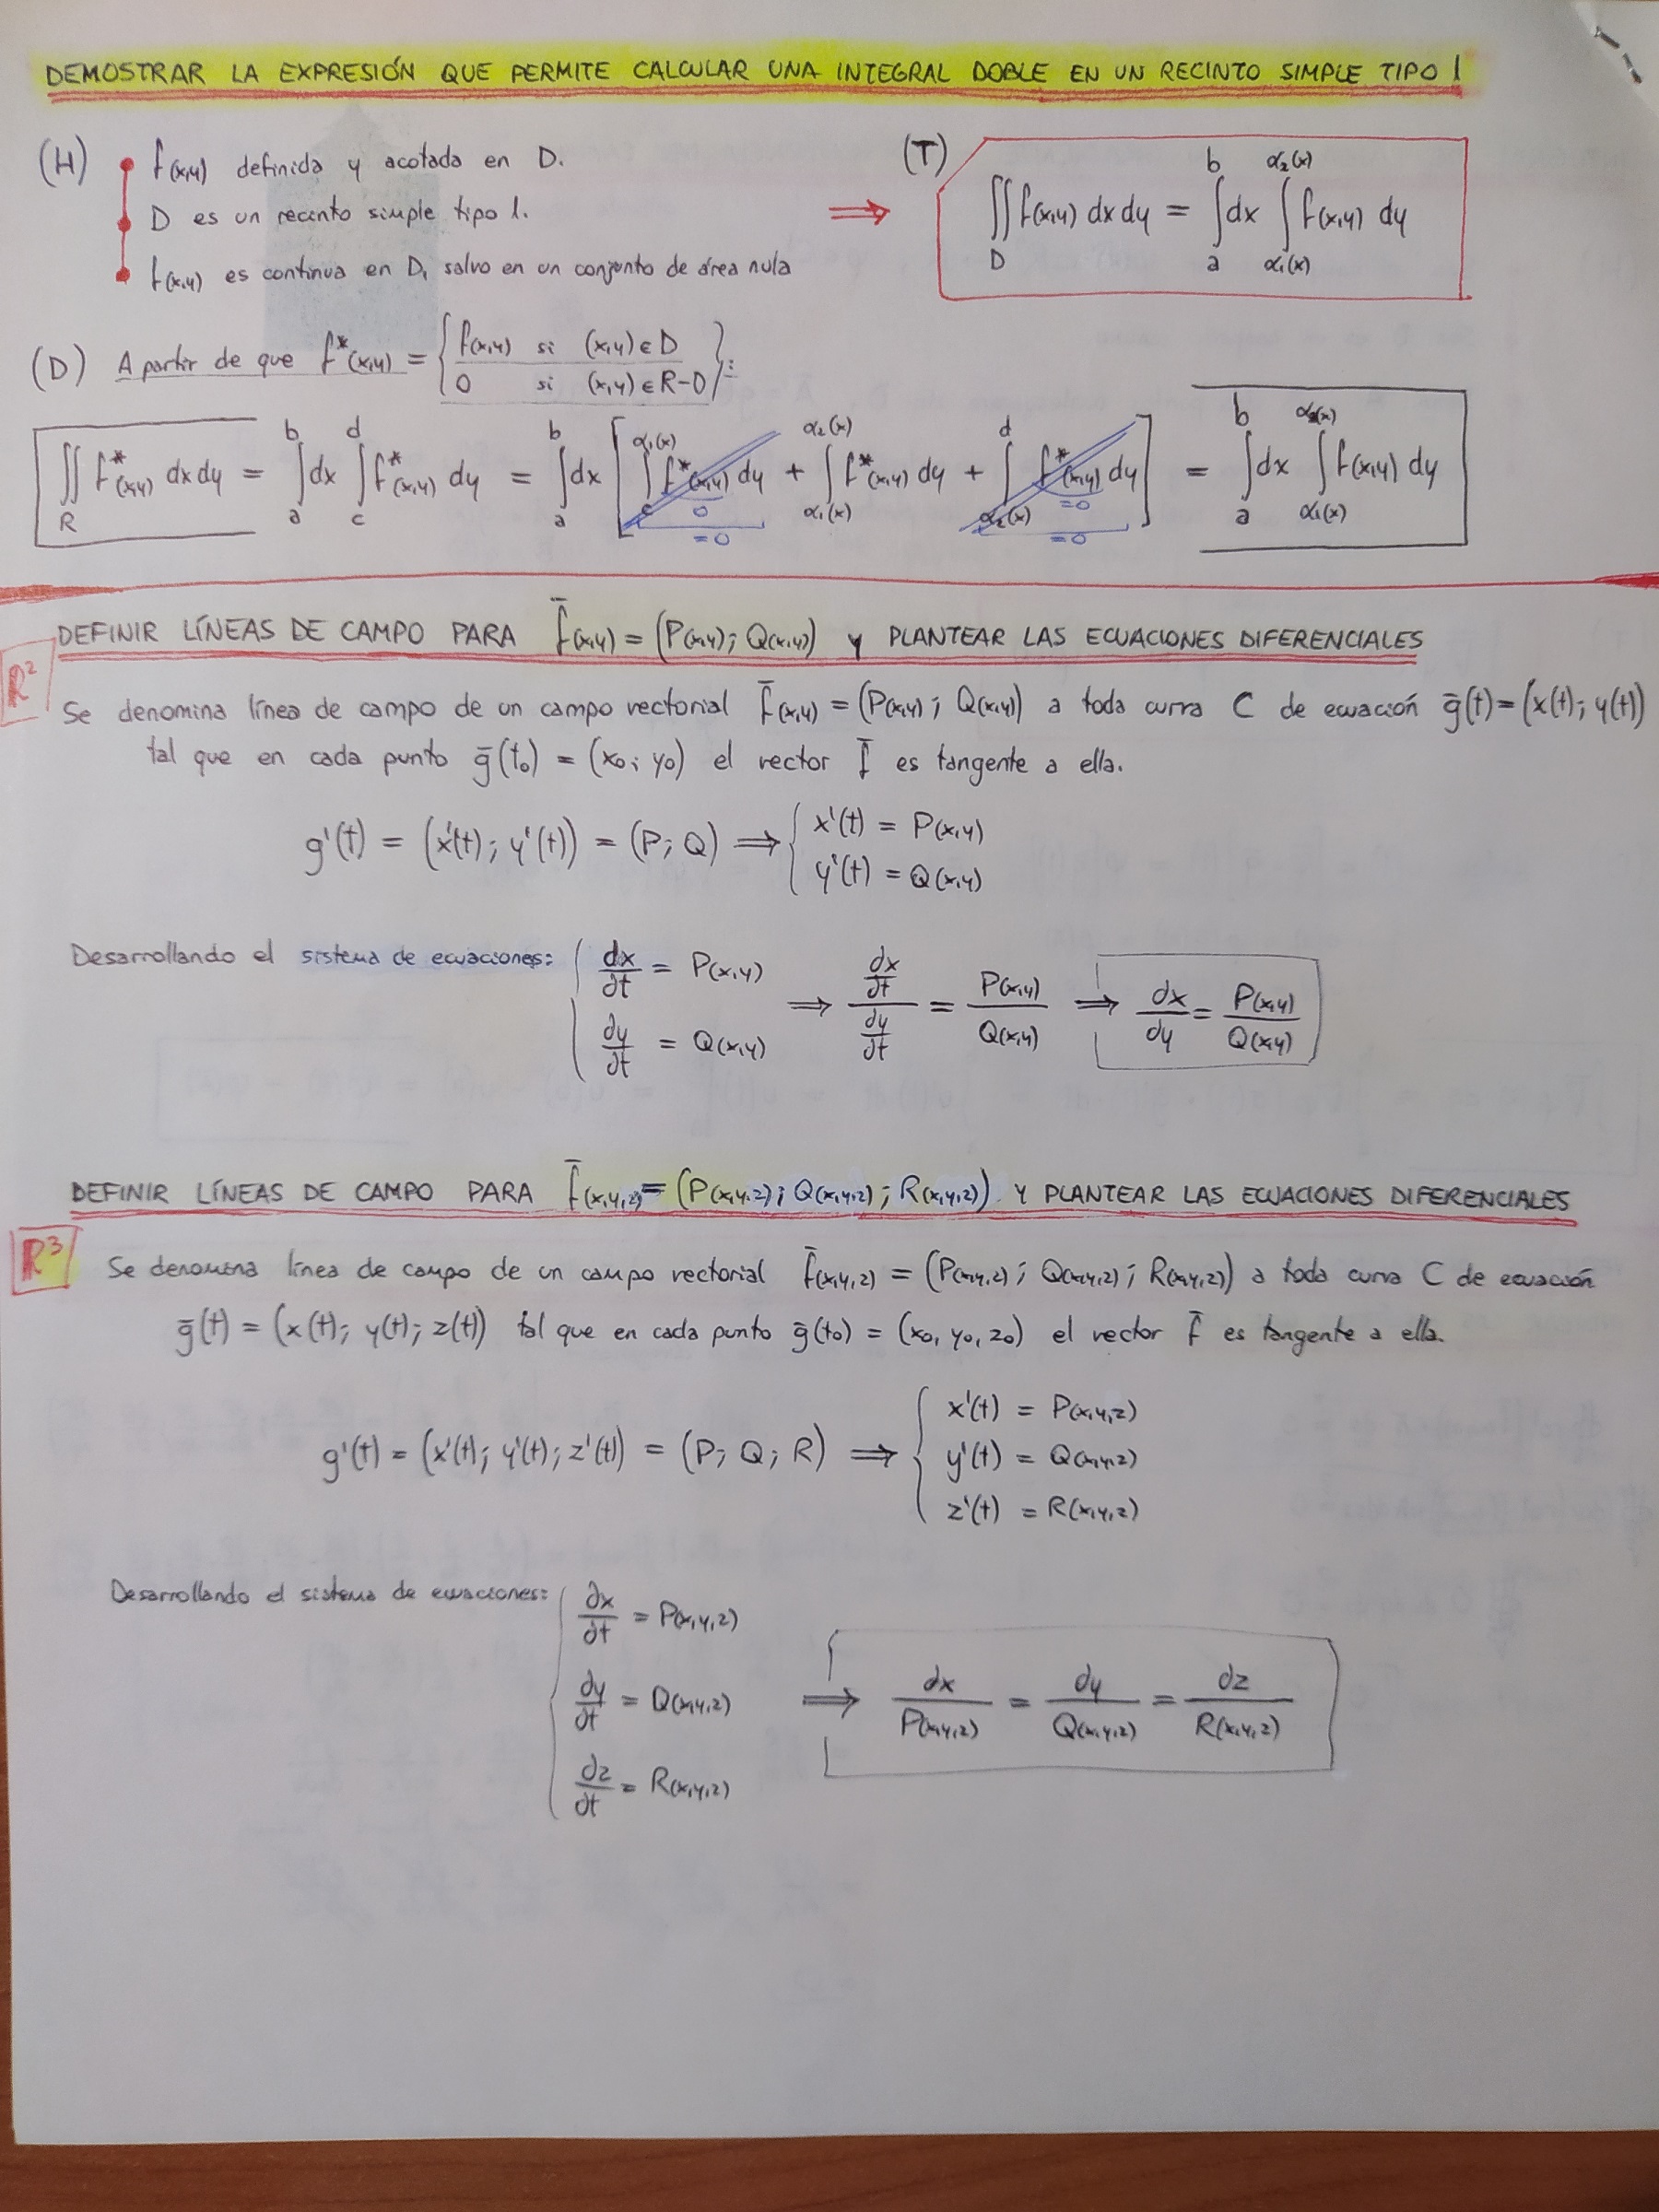 DEMOSTRAR LA EXPRESIÓN QUE PERMITE CALCULAR UNA INTEGRAL DOBLE EN UN RECINTO SIMPLE TIPO 1
(H) • f(x,y) definida y acotada en D.
• D es un recinto simple tipo 1.
• f(x,y) es continua en D, salvo en un conjunto de área nula
⇒ (T) ∬_D f(x,y) dx dy = ∫_a^b dx ∫_{α₁(x)}^{α₂(x)} f(x,y) dy
(D) A partir de que f*(x,y) = { f(x,y) si (x,y) ∈ D
0 si (x,y) ∈ R-D } :
∬_R f*(x,y) dx dy = ∫_a^b dx ∫_c^d f*(x,y) dy = ∫_a^b dx [ ∫_c^{α₁(x)} f*(x,y) dy + ∫_{α₁(x)}^{α₂(x)} f*(x,y) dy + ∫_{α₂(x)}^d f*(x,y) dy ] = ∫_a^b dx ∫_{α₁(x)}^{α₂(x)} f(x,y) dy
0 =0
=0 =0
R² DEFINIR LÍNEAS DE CAMPO PARA f̄(x,y) = (P(x,y); Q(x,y)) y PLANTEAR LAS ECUACIONES DIFERENCIALES
Se denomina línea de campo de un campo vectorial f̄(x,y) = (P(x,y); Q(x,y)) a toda curva C de ecuación ḡ(t) = (x(t); y(t))
tal que en cada punto ḡ(t₀) = (x₀; y₀) el vector f̄ es tangente a ella.
g'(t) = (x'(t); y'(t)) = (P; Q) ⇒ { x'(t) = P(x,y)
y'(t) = Q(x,y)
Desarrollando el sistema de ecuaciones: { dx/dt = P(x,y)
dy/dt = Q(x,y) ⇒ (dx/dt)/(dy/dt) = P(x,y)/Q(x,y) ⇒ dx/dy = P(x,y)/Q(x,y)
DEFINIR LÍNEAS DE CAMPO PARA f̄(x,y,z) = (P(x,y,z); Q(x,y,z); R(x,y,z)) Y PLANTEAR LAS ECUACIONES DIFERENCIALES
R³ Se denomina línea de campo de un campo vectorial f̄(x,y,z) = (P(x,y,z); Q(x,y,z); R(x,y,z)) a toda curva C de ecuación
ḡ(t) = (x(t); y(t); z(t)) tal que en cada punto ḡ(t₀) = (x₀, y₀, z₀) el vector f̄ es tangente a ella.
g'(t) = (x'(t); y'(t); z'(t)) = (P; Q; R) ⇒ { x'(t) = P(x,y,z)
y'(t) = Q(x,y,z)
z'(t) = R(x,y,z)
Desarrollando el sistema de ecuaciones: { dx/dt = P(x,y,z)
dy/dt = Q(x,y,z)
dz/dt = R(x,y,z)
⇒ dx/P(x,y,z) = dy/Q(x,y,z) = dz/R(x,y,z)